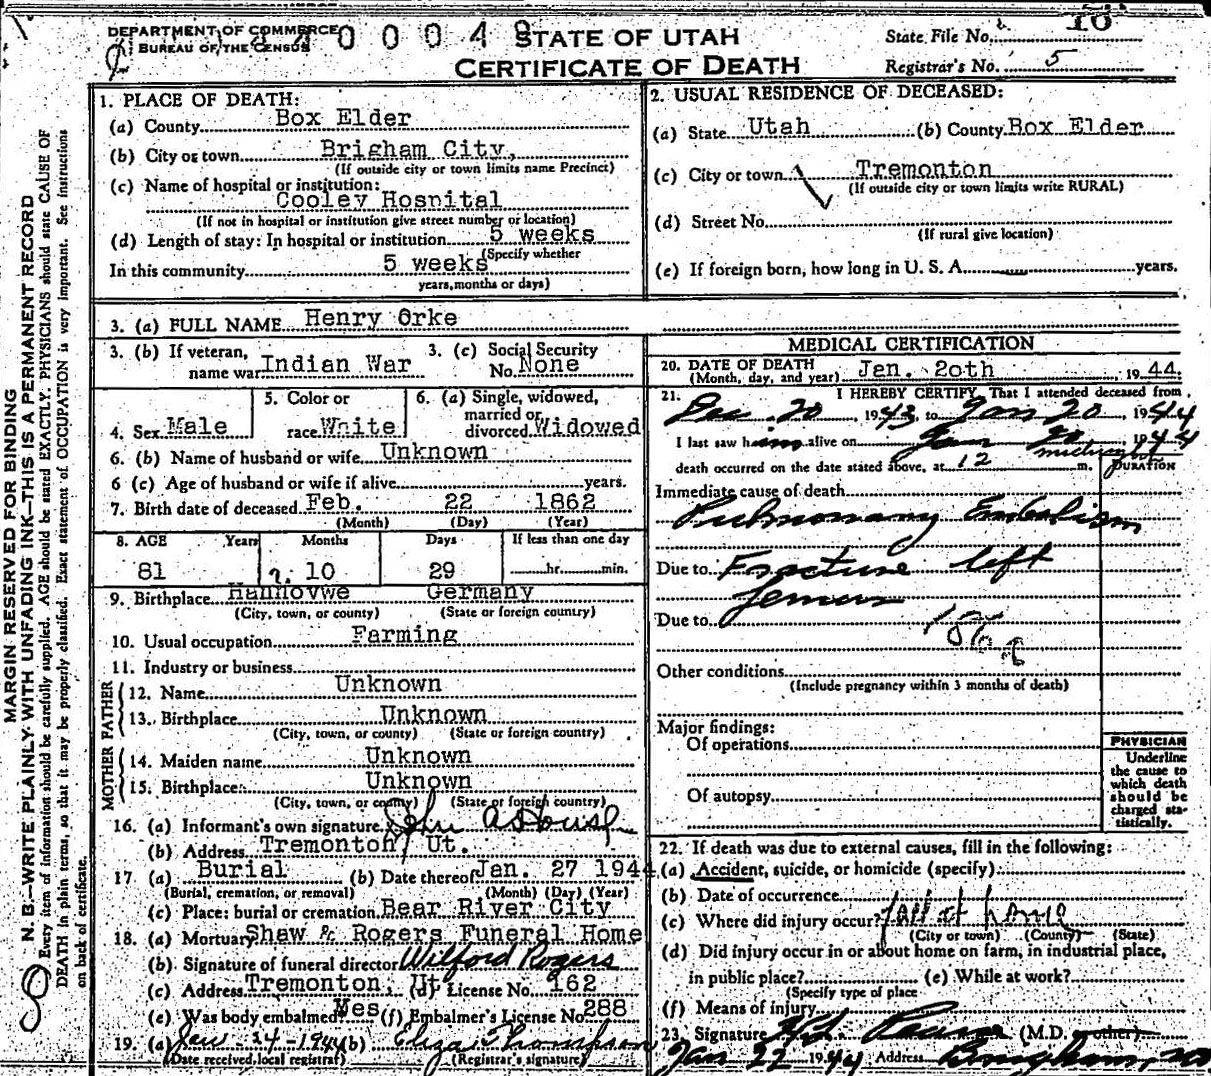 DEPARTMENT OF COMMERCE
BUREAU OF THE CENSUS
0 0 0 4 9
STATE OF UTAH
CERTIFICATE OF DEATH
State File No. 10
Registrar's No. 5
MARGIN RESERVED FOR BINDING
N. B.—WRITE PLAINLY WITH UNFADING INK—THIS IS A PERMANENT RECORD
Every item of information should be carefully supplied. AGE should be stated EXACTLY. PHYSICIANS should state CAUSE OF
DEATH in plain terms, so that it may be properly classified. Exact statement of OCCUPATION is very important. See instructions
on back of certificate.
1. PLACE OF DEATH:
(a) County Box Elder
(b) City or town Brigham City,
(If outside city or town limits name Precinct)
(c) Name of hospital or institution:
Cooley Hospital
(If not in hospital or institution give street number or location)
(d) Length of stay: In hospital or institution 5 weeks
(Specify whether
In this community 5 weeks
years, months or days)
2. USUAL RESIDENCE OF DECEASED:
(a) State Utah (b) County Box Elder
(c) City or town Tremonton
(If outside city or town limits write RURAL)
(d) Street No.
(If rural give location)
(e) If foreign born, how long in U. S. A. years.
3. (a) FULL NAME Henry Orke
3. (b) If veteran, name war Indian War
3. (c) Social Security No. None
4. Sex Male
5. Color or race White
6. (a) Single, widowed, married or divorced Widowed
6. (b) Name of husband or wife Unknown
6 (c) Age of husband or wife if alive years.
7. Birth date of deceased Feb. 22 1862
(Month) (Day) (Year)
8. AGE Years Months Days If less than one day
81 10 29 hr. min.
9. Birthplace Hannovwe Germany
(City, town, or county) (State or foreign country)
10. Usual occupation Farming
11. Industry or business
FATHER
12. Name Unknown
13. Birthplace Unknown
(City, town, or county) (State or foreign country)
MOTHER
14. Maiden name Unknown
15. Birthplace Unknown
(City, town, or county) (State or foreign country)
16. (a) Informant's own signature John A House
(b) Address Tremonton, Ut.
17 (a) Burial (b) Date thereof Jan. 27 1944
(Burial, cremation, or removal) (Month) (Day) (Year)
(c) Place: burial or cremation Bear River City
18. (a) Mortuary Shaw & Rogers Funeral Home
(b) Signature of funeral director Wilford Rogers
(c) Address Tremonton, Ut. (d) License No. 162
(e) Was body embalmed? Yes (f) Embalmer's License No. 288
19. (a) Jan 24-1944 (b) Eliza Thompson
(Date received, local registrar) (Registrar's signature)
MEDICAL CERTIFICATION
20. DATE OF DEATH
(Month, day, and year) Jan. 20th 1944.
21. I HEREBY CERTIFY, That I attended deceased from
Dec. 20 1943, to Jan 20, 1944
I last saw him alive on Jan 20 1944
death occurred on the date stated above, at 12 midnight m.
DURATION
Immediate cause of death
Pulmonary Embolism
Due to Fracture left
femur
Due to
186
Other conditions
(Include pregnancy within 3 months of death)
Major findings:
Of operations
Of autopsy
PHYSICIAN
Underline
the cause to
which death
should be
charged sta-
tistically.
22. If death was due to external causes, fill in the following:
(a) Accident, suicide, or homicide (specify)
(b) Date of occurrence
(c) Where did injury occur? fall at home
(City or town) (County) (State)
(d) Did injury occur in or about home on farm, in industrial place,
in public place? (e) While at work?
(Specify type of place
(f) Means of injury
23. Signature (M.D. other)
Jan 22 1944 Address Brigham,